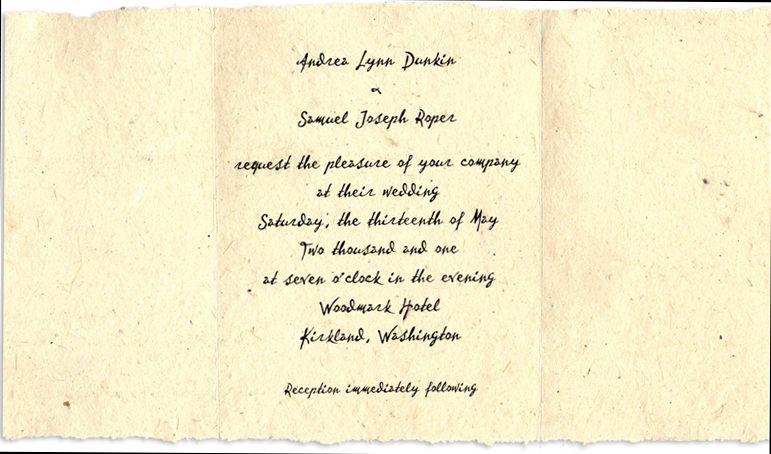 Andrea Lynn Dunkin
&
Samuel Joseph Roper
request the pleasure of your company
at their wedding
Saturday, the thirteenth of May
Two thousand and one
at seven o'clock in the evening
Woodmark Hotel
Kirkland, Washington
Reception immediately following